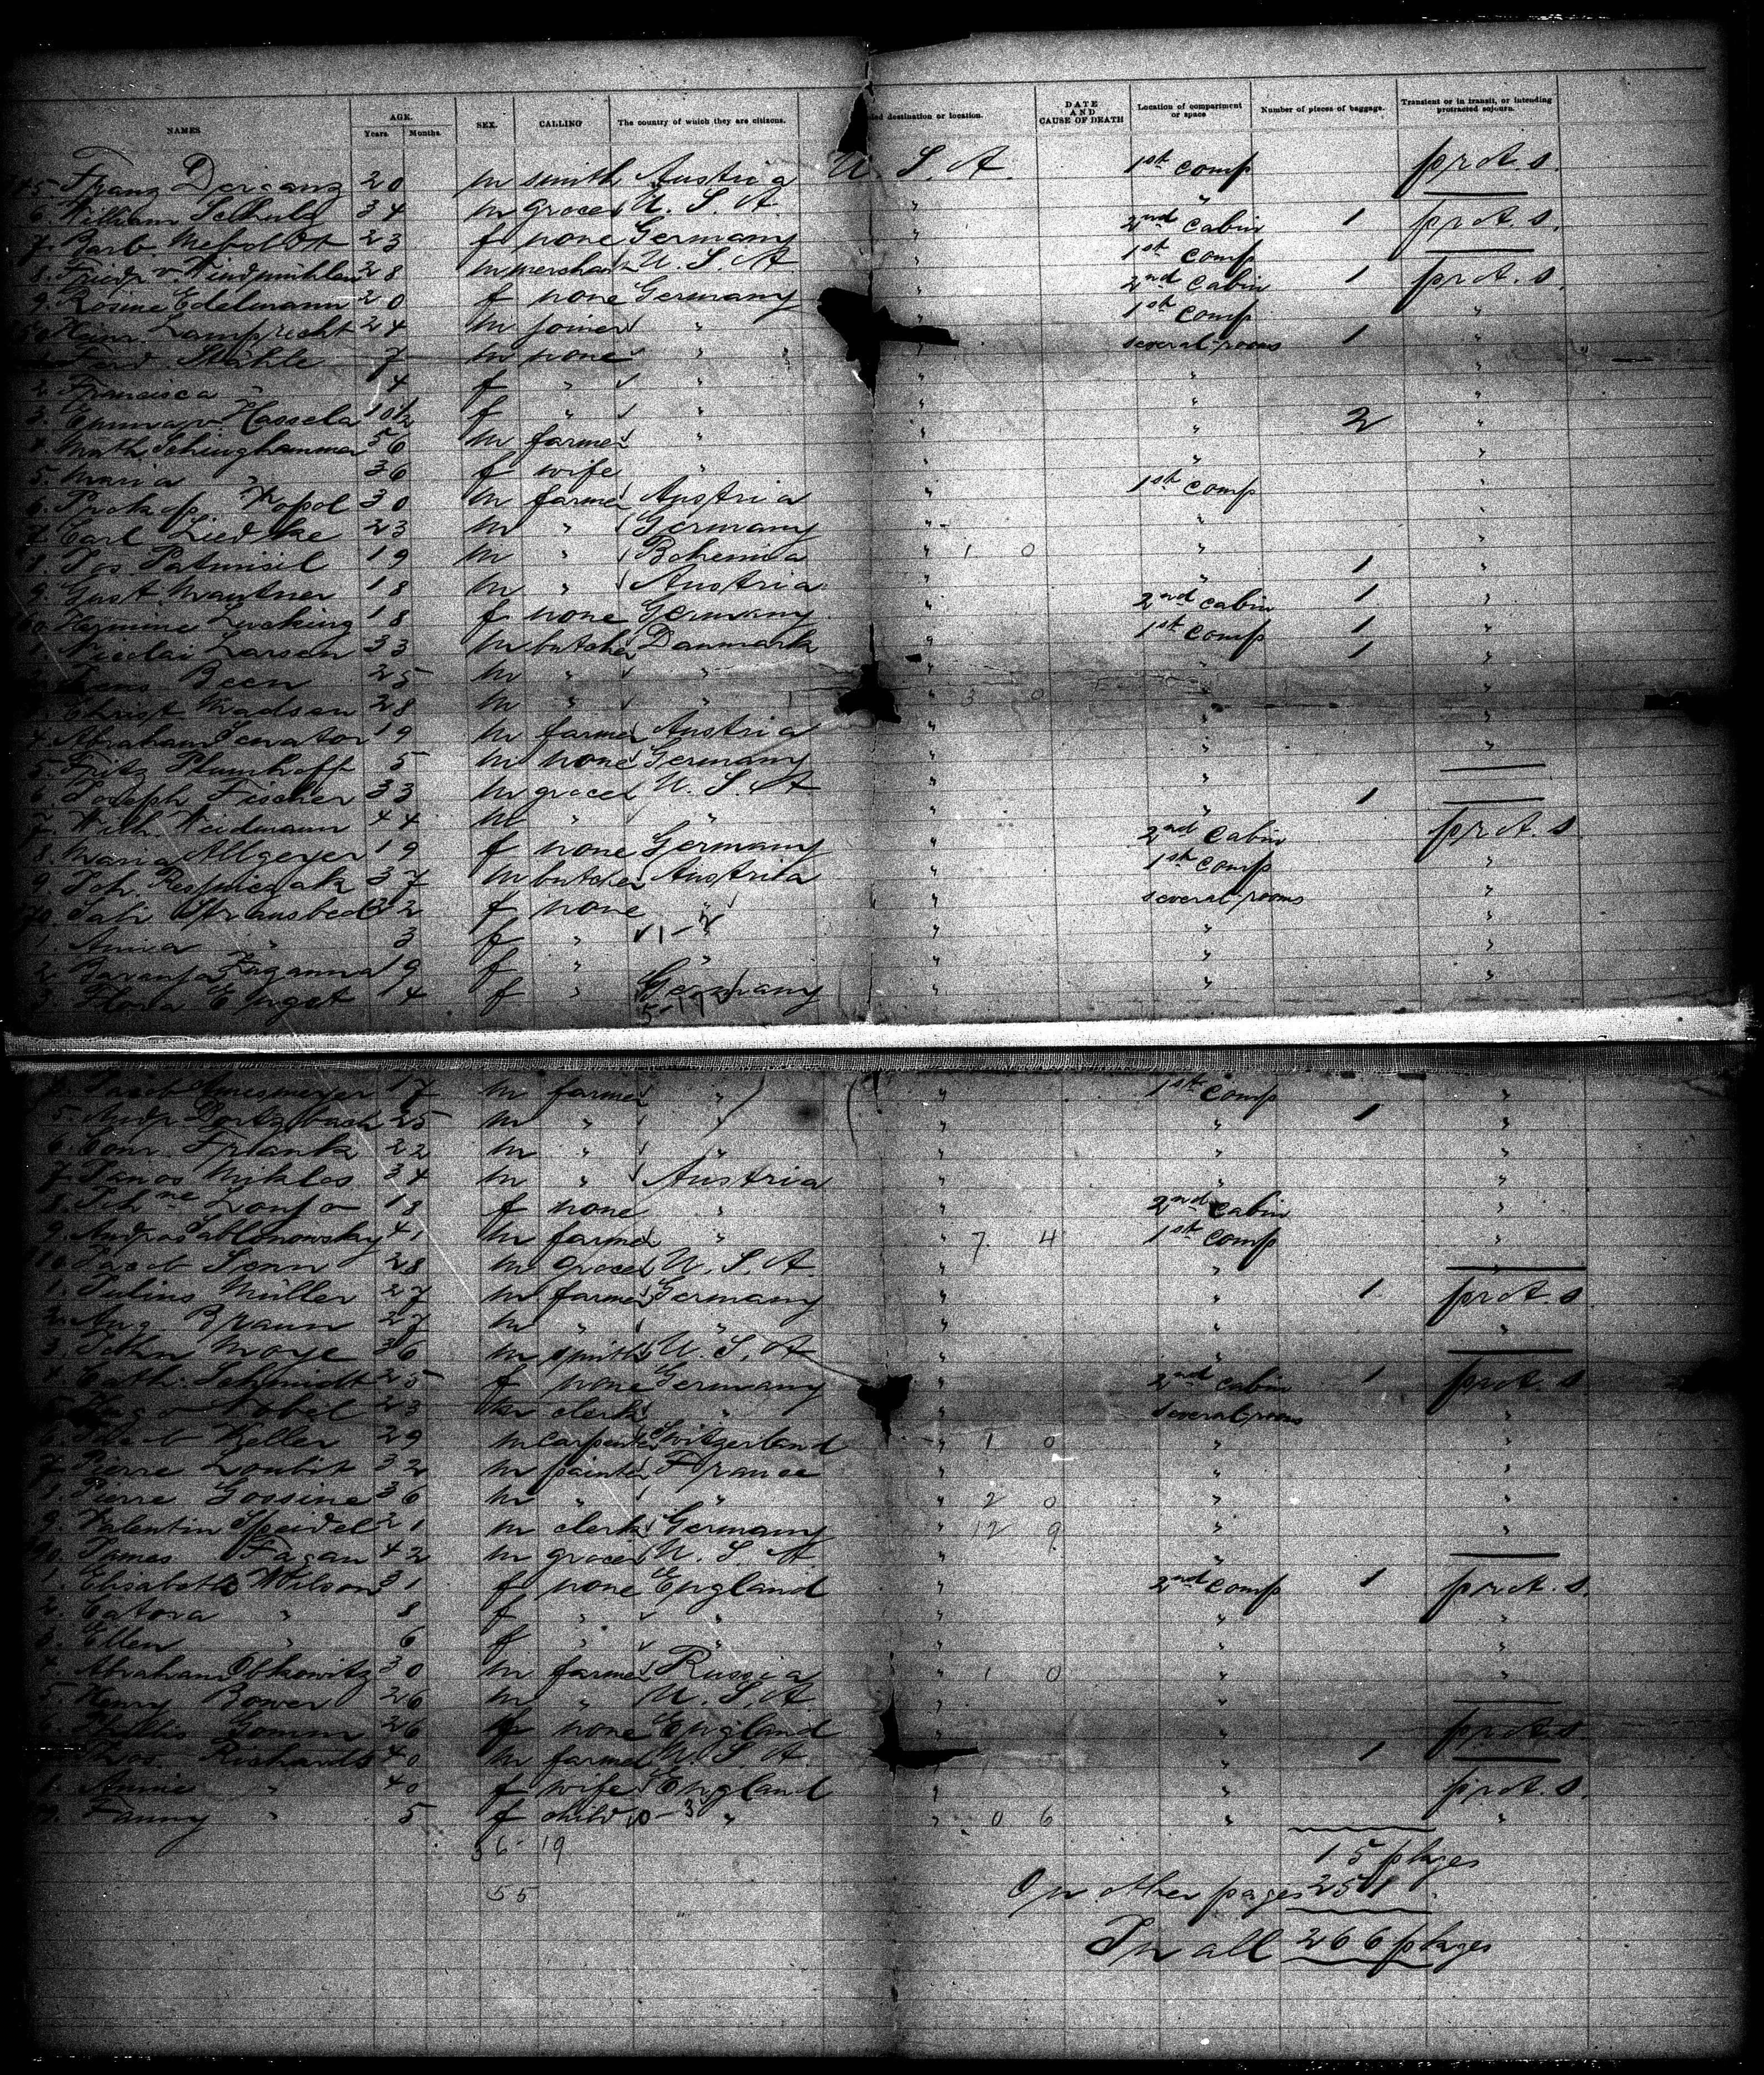 NAMES AGE. Years. Months. SEX. CALLING The country of which they are citizens. ded destination or location. DATE AND CAUSE OF DEATH Location of compartment or space Number of pieces of baggage. Transient or in transit, or intending protracted sojourn.
5. Franz 20 m smith Austria U. S. A. 1st comp prot. s.
6. William Schulz 34 m grocer U. S. A. "
7. Barb. 23 f none Germany " 2nd cabin 1 prot. s.
8. Friedr. v. Windmühlen 28 m merchant U. S. A. " 1st comp
9. Rosine Edelmann 20 f none Germany " 2nd cabin 1 prot. s.
Heinr. Lamprecht 24 m joiner " " 1st comp "
Ferd. Stähle 7 m none " " several rooms 1 "
2. Francisca " 4 f " " " " "
3. Emma v. Hassela f " " " " "
4. Math. Schinghammer 56 m farmer " " " 2 "
5. Maria " 36 f wife " " " "
6. Prokop Popol 30 m farmer Austria " 1st comp "
7. Carl Liedtke 23 m " Germany " " "
8. Jos. 19 m " Bohemia " 1 0 " "
9. Gust. Mautner 18 m " Austria " " 1 "
60. Hermine Lucking 18 f none Germany " 2nd cabin 1 "
1. Nicolai Larsen 33 m butcher Danmark " 1st comp 1 "
Jens Been 25 m " " " " 1 "
Christ Madsen 28 m " " " 3 0 " "
4. Abraham Senator 19 m farmer Austria " " "
5. Fritz Plumhoff 5 m none Germany " " "
6. Joseph Fischer 33 m grocer U. S. A " "
7. Wilh. Weidmann 44 m " " " " 1
8. Maria Allgeyer 19 f none Germany " 2nd cabin prot. s
9. Joh. 37 m butcher Austria " 1st comp "
70. 32 f none " " several rooms "
1. Anna " 3 f " " " " "
2. 19 f " " " " "
3. Flora Engst 14 f " Germany " " "
4. Jacob 17 m farmer " " 1st comp "
5. Andr. 25 m " " " " 1 "
6. Conr. Frank 22 m " " " " "
7. Janos Miklos 34 m " Austria " " "
8. Joh.ne 18 f none " " 2nd cabin "
9. Andras Jablonowsky 41 m farmer " " 7 4 1st comp "
Jacob Sonn 28 m grocer U. S. A. " "
1. Julius Müller 27 m farmer Germany " " 1 prot. s
2. Aug. Braun 27 m " " " " "
3. John Moye 36 m smith U. S. A " "
4. Cath. Schmidt 25 f none Germany " 2nd cabin 1 prot. s
Hugo Nobel 23 m clerk " " several rooms "
6. Jacob Zeller 29 m carpenter Switzerland " 1 0 " "
7. Pierre Loubit 32 m painter France " " "
Pierre Gossine 36 m " " " 2 0 " "
9. Valentin Speidel 21 m clerk Germany " 12 9 " "
90. James Fagan 42 m grocer U. S. A " "
1. Elisabeth Wilson 31 f none England " 2nd comp 1 prot. s.
2. Catora " 8 f " " " " "
3. Ellen " 6 f " " " " "
4. Abraham Itkowitz 30 m farmer Russia " 1 0 " "
5. Henry Bower 26 m " U. S. A " "
6. Phillis Gomm 26 f none England " " prot. s
Thos. Richards 40 m farmer U. S. A " " 1
8. Annie " 40 f wife England " " prot. s.
99. Fanny " 5 f child 10-3 " " 0 6 " "
36-19 15 pkges
55 On other pages 251
In all 266 pkges